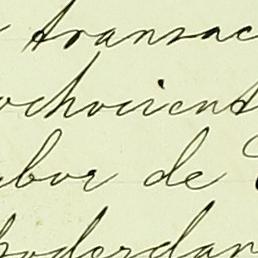 transac
ochocient
abor de
poderdan